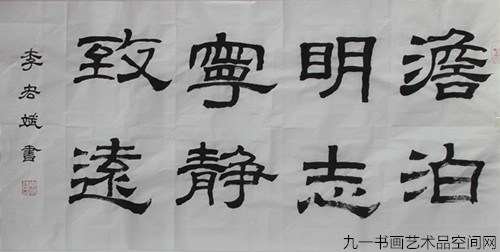 澹泊
明志
寧静
致遠
李宏斌書
九一书画艺术品空间网